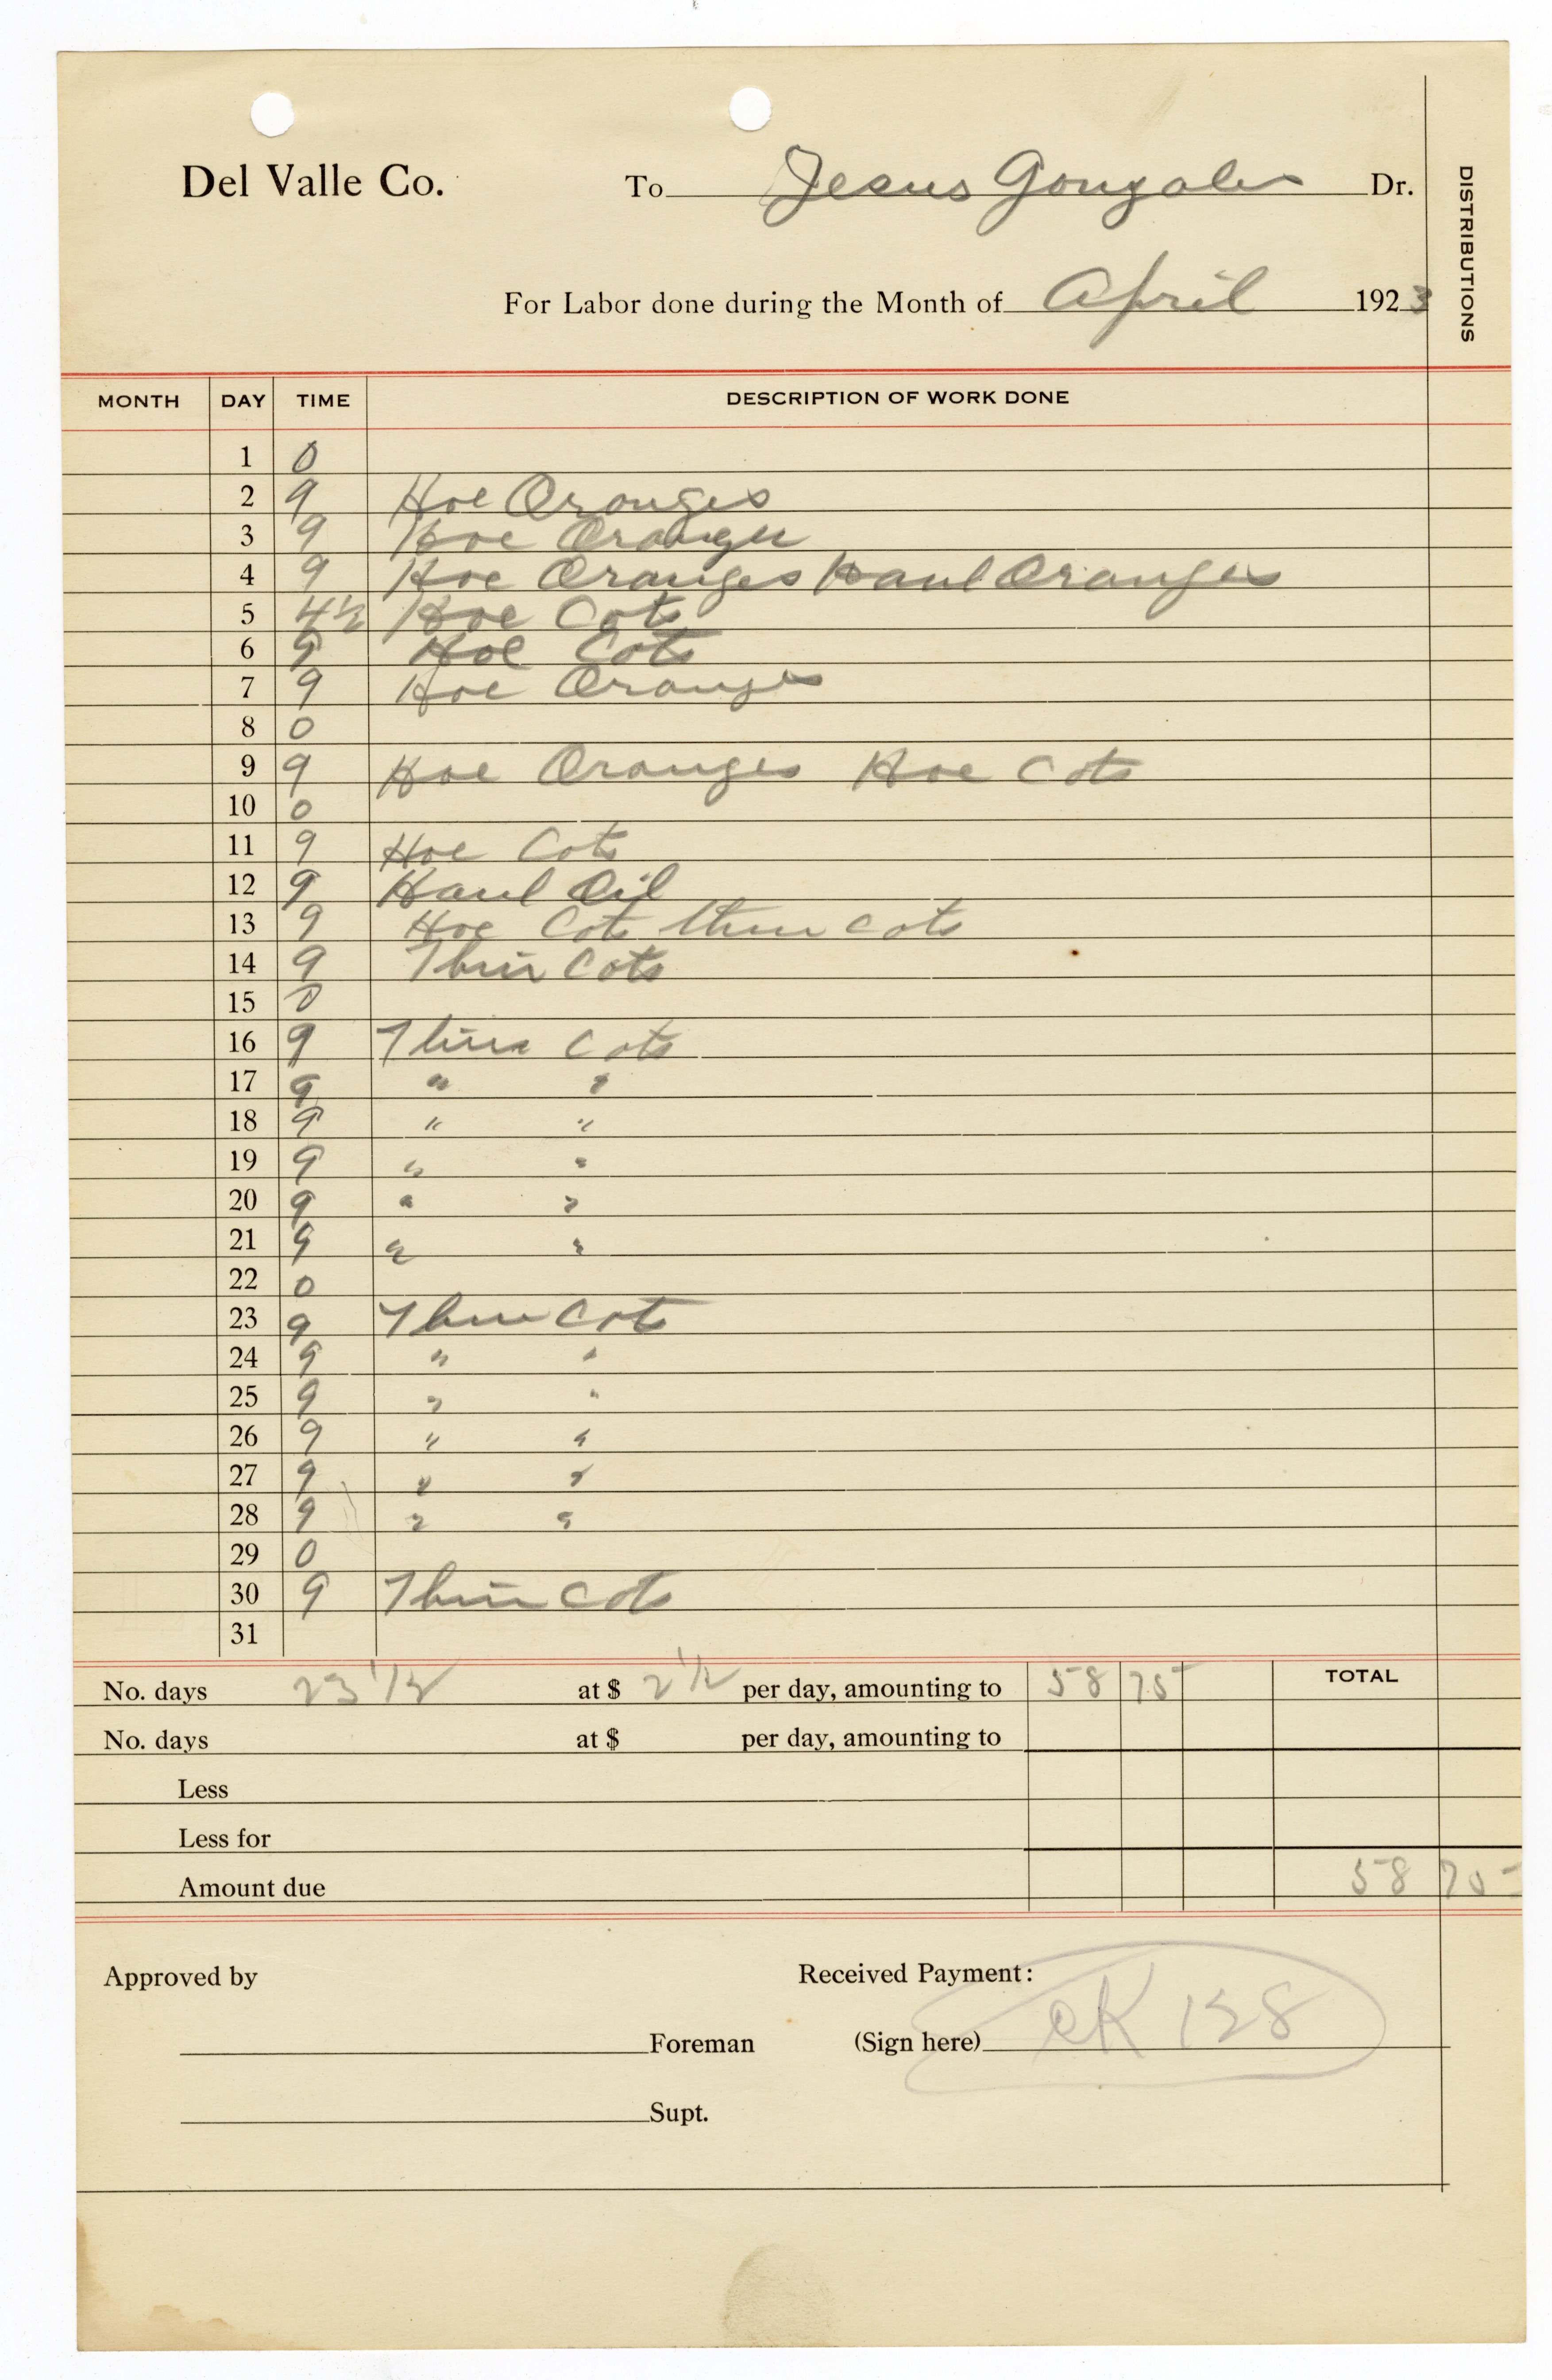 Del Valle Co. To Jesus Gonzales Dr.
DISTRIBUTIONS
For Labor done during the Month of April 1923
MONTH DAY TIME DESCRIPTION OF WORK DONE
1 0
2 9 Hoe Oranges
3 9 Hoe Oranges
4 9 Hoe Oranges Haul Oranges
5 4½ Hoe Cots
6 9 Hoe Cots
7 9 Hoe Oranges
8 0
9 9 Hoe Oranges Hoe Cots
10 0
11 9 Hoe Cots
12 9 Haul Oil
13 9 Hoe Cots thin cots
14 9 Thin Cots
15 0
16 9 Thin Cots
17 9 " "
18 9 " "
19 9 " "
20 9 " "
21 9 " "
22 0
23 9 Thin Cots
24 9 " "
25 9 " "
26 9 " "
27 9 " "
28 9 " "
29 0
30 9 Thin Cots
31
No. days 23 1/2 at $ 2 1/2 per day, amounting to 58 75 TOTAL
No. days at $ per day, amounting to
Less
Less for
Amount due 58 75
Approved by Received Payment:
Foreman (Sign here) CK 128
Supt.